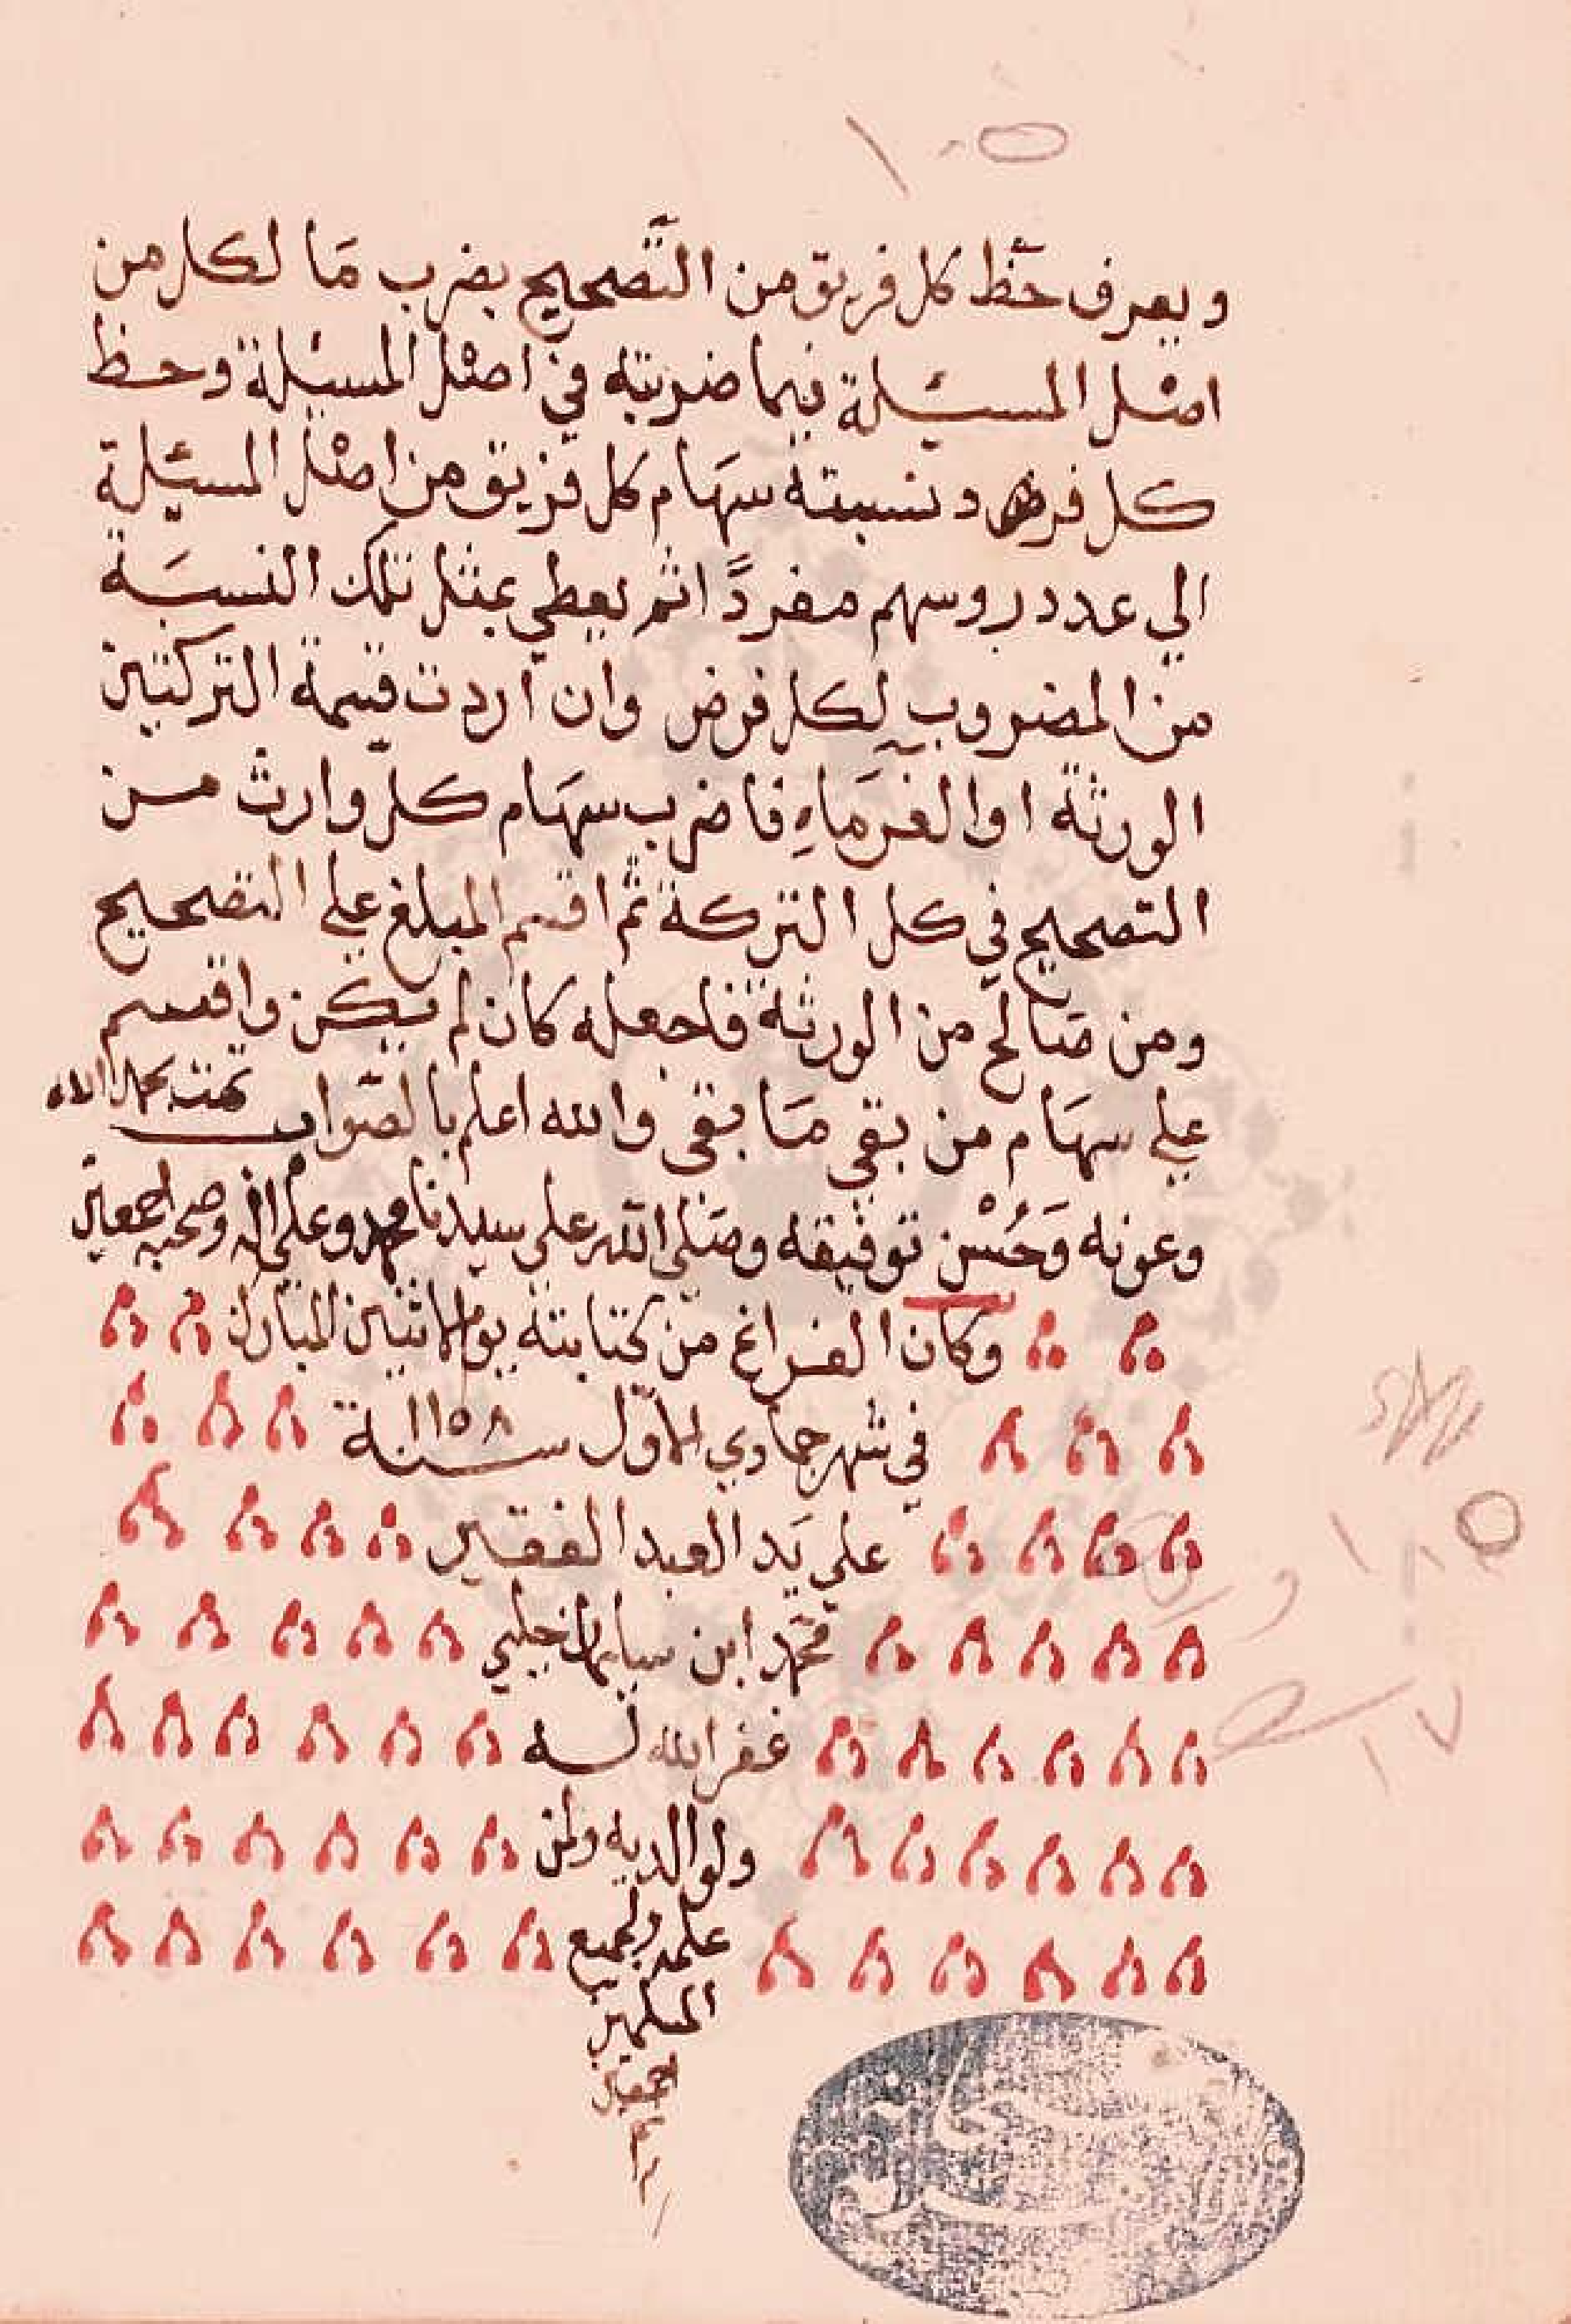 ١٠٥
ويعرف حظ كل فريق من التصحيح بضرب ما لكل من
اصل المسئلة فيما ضربته في اصل المسئلة وحظ
كل فرض ونسبة سهام كل فريق من اصل المسئلة
الي عدد روسهم مفردًا ثم يعطي بمثل تلك النسبة
من المضروب لكل فرض وان اردت قسمة التركة بين
الورثة او الغرماءِ فاضرب سهام كل وارث من
التصحيح في كل التركة ثم اقسم المبلغ علي التصحيح
ومن صالح من الورثة فاجعله كان لم يكن واقسم
علي سهام من بقي ما بقي والله اعلم بالصواب تمت بحمد الله
وعونه وَحُسْن توفيقه وصلى الله على سيدنا محمد وعلى اله وصحبه اجمعين
وكان الفراغ من كتابته يوم الاثنين المبارك
في شهر جمادي الاول سنة ١١٥٨
علي يد العبد الفقير
محمد ابن سليمان جلبي
غفر الله له
ولوالديه ولمن
علمه ولجميع
المسلمين
اجمعين